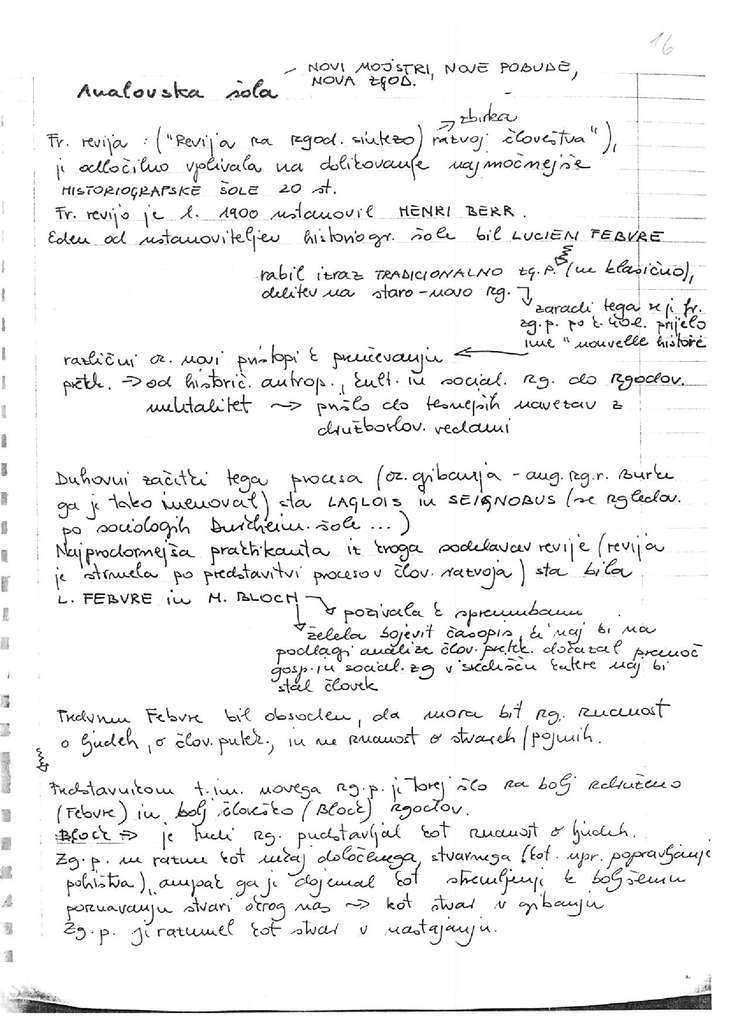 16
– NOVI MOJSTRI, NOVE POBUDE,
NOVA ZGOD.
Analovska šola
zbirka
Fr. revija : ("Revija za zgod. sintezo) razvoj človeštva"),
je odločilno vplivala na oblikovanje najmočnejše
HISTORIOGRAFSKE ŠOLE 20 st.
Fr. revijo je l. 1900 ustanovil HENRI BERR.
Eden od ustanoviteljev historiogr. šole bil LUCIEN FEBVRE
rabil izraz TRADICIONALNO zg.p. (ne klasično),
delitev na staro-novo zg.
zaradi tega se ji fr.
zg.p. po l. 40 prijelo
ime "nouvelle histoire
različni oz. novi pristopi k preučevanju
pretk. → od historič. antrop., kult. in social. zg. do zgodov.
mentalitet → prišlo do tesnejših navezav z
družboslov. vedami
Duhovni začetki tega procesa (oz. gibanja – ang. zg.r. Burke
ga je tako imenoval) sta LAGLOIS in SEIGNOBUS (se zgledov.
po sociologih Durkheim. šole ...)
Najprodornejša praktikanta iz kroga sodelavcev revije (revija
je strmela po predstavitvi procesov člov. razvoja) sta bila
L. FEBVRE in M. BLOCH
pozivala k spremembam
želela bojevit časopis, ki naj bi na
podlagi analize člov. pretk. dokazal premoč
gosp. in social. zg v središču katere naj bi
stal človek
Predvsem Febvre bil obsoden, da mora bit zg. znanost
o ljudeh, o člov. pretek., in ne znanost o stvareh/pojmih.
Predstavnikom t.im. novega zg.p. je torej šlo za bolj združeno
(Febvre) in bolj človeško (Block) zgodov.
BLOCK → je tudi zg. predstavljal kot znanost o ljudeh.
Zg.p. ni razum kot nekaj določenega, stvarnega (kot. npr. popravljanje
pohištva), ampak ga je dojemal kot stremljenje k boljšemu
poznavanju stvari okrog nas → kot stvar v gibanju
Zg.p. je razumel kot stvar v nastajanju.